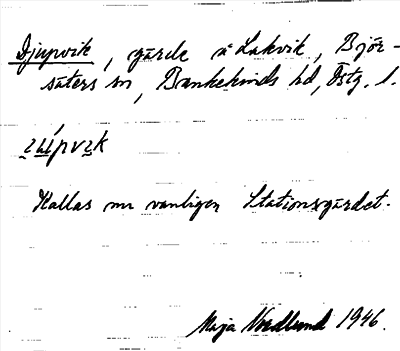 Djupvik, gärde å Lakvik, Björ-
säters sn, Bankekinds hd, Östg. l.
Kallas nu vanligen Stationsgärdet.
Maja Nordlund 1946.